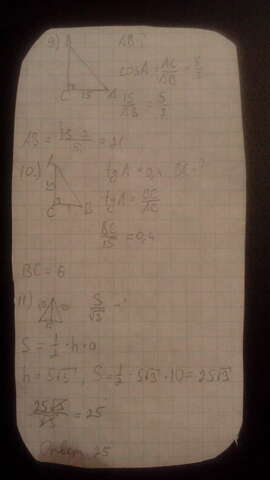 9) B AB-?
cosA = AC/AB = 5/7
C 15 A
15/AB = 5/7
AB = 15·7/5 = 21
10.) A tgA = 0,4 BC-?
15
tgA = BC/AC
C B
BC/15 = 0,4
BC = 6
11) S/√3 - ?
S = 1/2 · h · a
h = 5√3, S = 1/2 · 5√3 · 10 = 25√3
25√3/√3 = 25
Ответ 25